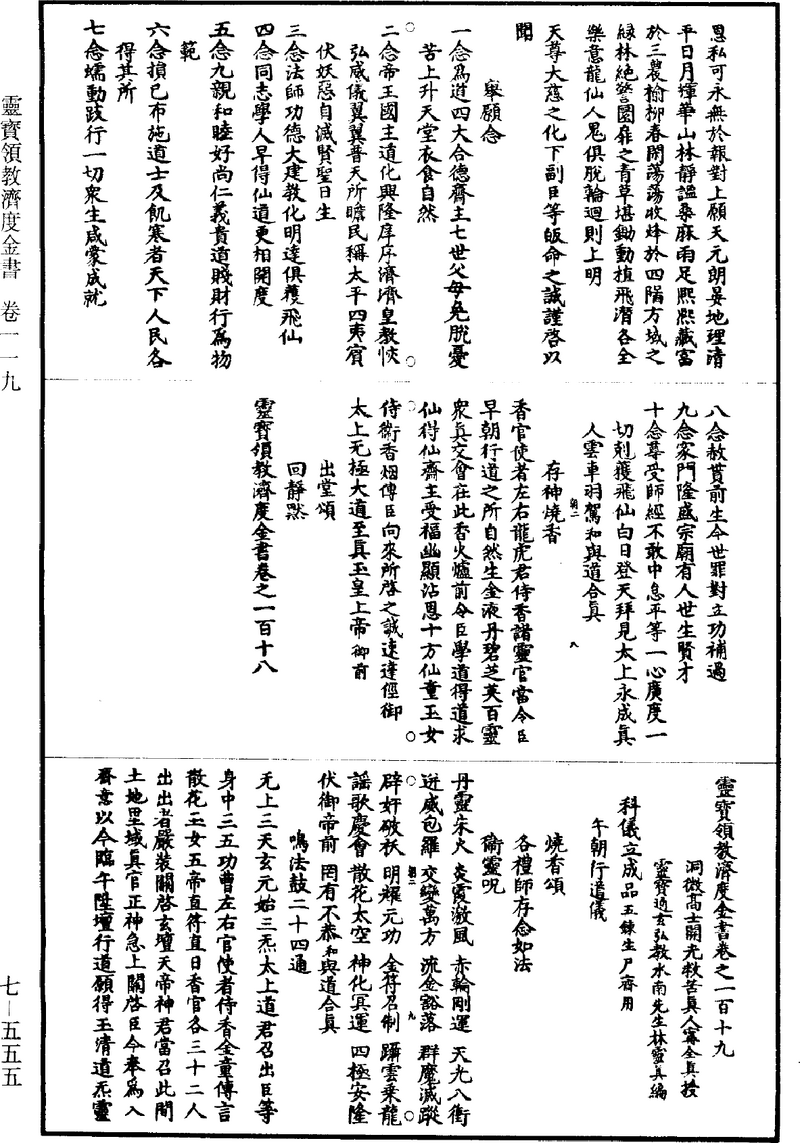 恩私可永無於報對上願天元朗晏地理清
平日月輝華山林靜謐桑麻雨足熙熙藏富
於三農榆柳春開蕩蕩收烽於四階方域之
綠林絕警園扉之青草堪鋤動植飛潛各全
樂意龍仙人鬼俱脫輪迴則上明
天尊大慈之化下副臣等皈命之誠謹啓以
聞
舉願念
一念爲道四大合德齋主七世父母免脫憂
苦上升天堂衣食自然
二念帝王國主道化興隆庠序濟濟皇教恢
弘威儀翼翼普天所瞻民稱太平四夷賓
伏妖惡自滅賢聖日生
三念法師功德大建教化明達俱獲飛仙
四念同志學人早得仙道更相開度
五念九親和睦好尚仁義貴道賤財行爲物
範
六念損己布施道士及飢寒者天下人民各
得其所
七念蠕動跂行一切衆生咸蒙成就
八念赦貰前生今世罪對立功補過
九念家門隆盛宗廟有人世生賢才
十念尊受師經不敢中息平等一心廣度一
切剋獲飛仙白日登天拜見太上永成真
人雲車羽駕和與道合真
存神燒香
香官使者左右龍虎君侍香諸靈官當令臣
早朝行道之所自然生金液丹碧芝英百靈
衆真交會在此香火爐前令臣學道得道求
仙得仙齋主受福幽顯沾恩十方仙童玉女
侍衞香烟傳臣向來所啓之誠速達徑御
太上无極大道至真玉皇上帝御前
出堂頌
回靜默
靈寶領教濟度金書卷之一百十八
靈寶領教濟度金書卷之一百十九
洞微高士開光救苦真人甯全真授
靈寶通玄弘教水南先生林靈真編
科儀立成品五鍊生尸齋用
午朝行道儀
燒香頌
各禮師存念如法
衞靈呪
丹靈朱火 炎霞激風 赤輪剛運 天光八衝
迸威包羅 交變萬方 流金豁落 群魔滅蹤
辟奸破妖 明耀元功 金符召制 躡雲乘龍
謡歌慶會 散花太空 神化冥運 四極安隆
伏御帝前 罔有不恭 和與道合真
鳴法鼓二十四通
无上三天玄元始三炁太上道君召出臣等
身中三五功曹左右官使者侍香金童傳言
散花玉女五帝直符直日香官各三十二人
出出者嚴裝關啓玄壇天帝神君當召此間
土地里域真官正神急上關啓臣今奉爲入
齋意以今臨午陞壇行道願得玉清道炁靈
靈寶領教濟度金書 卷一一九
七—五五五